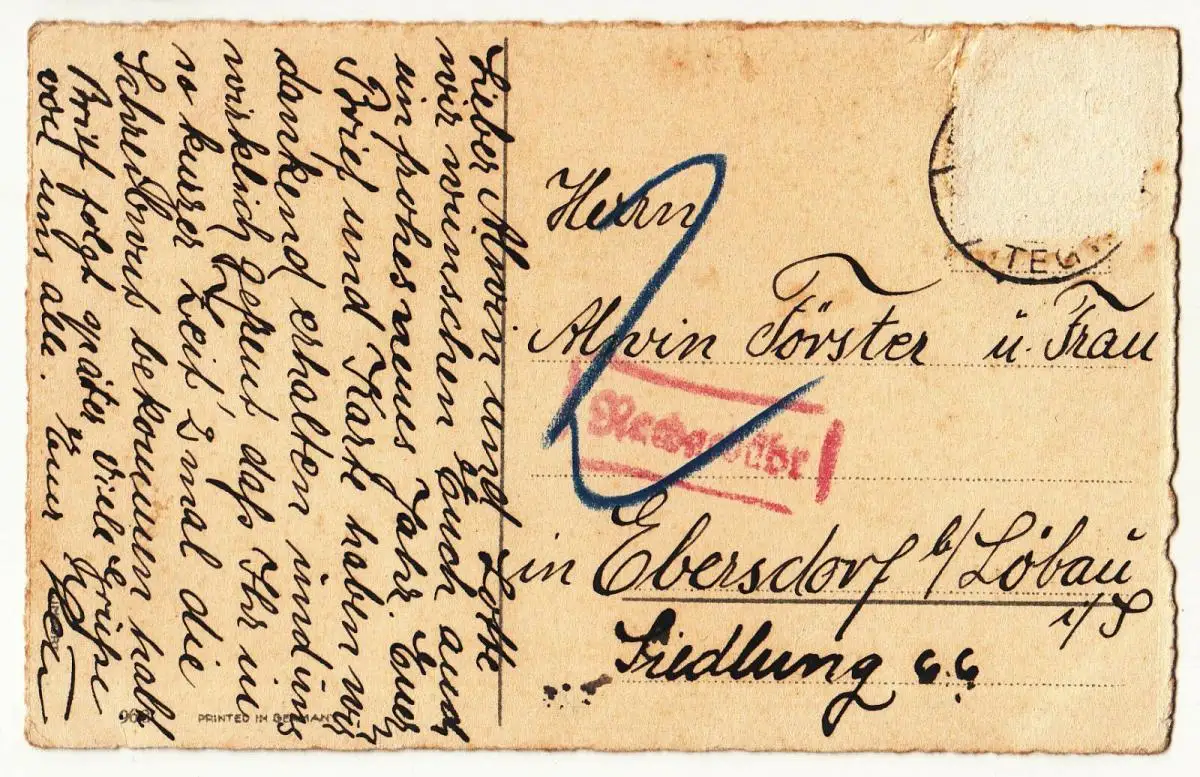 Lieber Alwin und Lotte
wir wünschen Euch auch
ein frohes neues Jahr. Euer
Brief und Karte haben wir
dankend erhalten und uns
wirklich gefreut, dafs Ihr in
so kurzer Zeit, 2 mal die
Schreibwut bekommen habt.
Brief folgt später viele Grüfse
von uns alle. Euer
Herrn
Alwin Förster u. Frau
in Ebersdorf b/Löbau
i/S
Siedlung 66
Nachgebühr
TEG
2
PRINTED IN GERMANY